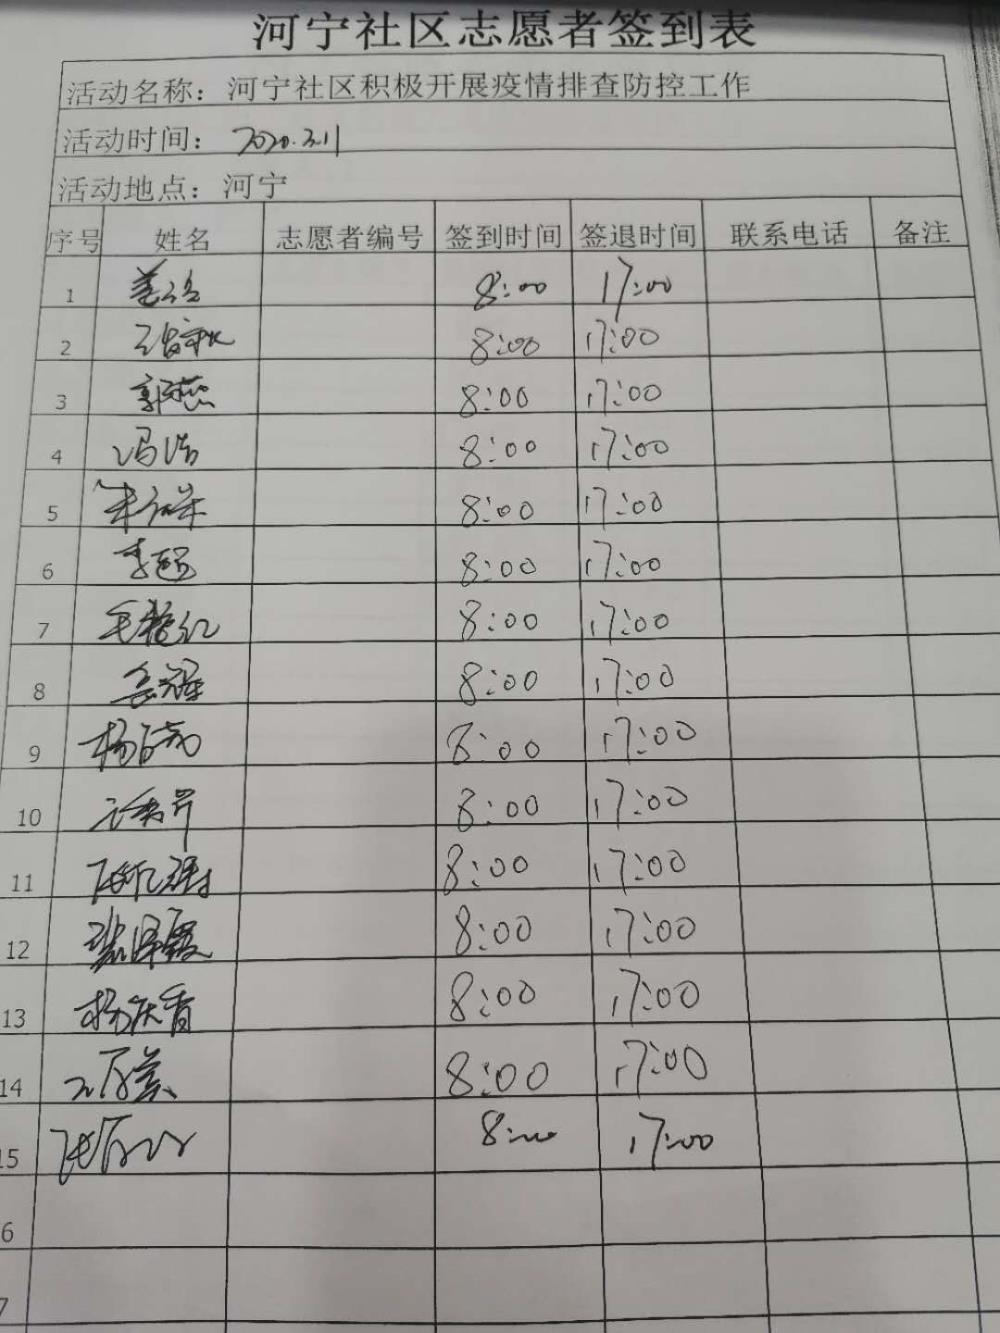 河宁社区志愿者签到表
活动名称：河宁社区积极开展疫情排查防控工作
活动时间：2020.2.11
活动地点：河宁
序号 姓名 志愿者编号 签到时间 签退时间 联系电话 备注
1 8:00 17:00
2 8:00 17:00
3 郭燕 8:00 17:00
4 冯浩 8:00 17:00
5 8:00 17:00
6 李 8:00 17:00
7 毛艳红 8:00 17:00
8 8:00 17:00
9 杨 8:00 17:00
10 8:00 17:00
11 8:00 17:00
12 8:00 17:00
13 杨庆香 8:00 17:00
14 8:00 17:00
15 8:00 17:00
6
7